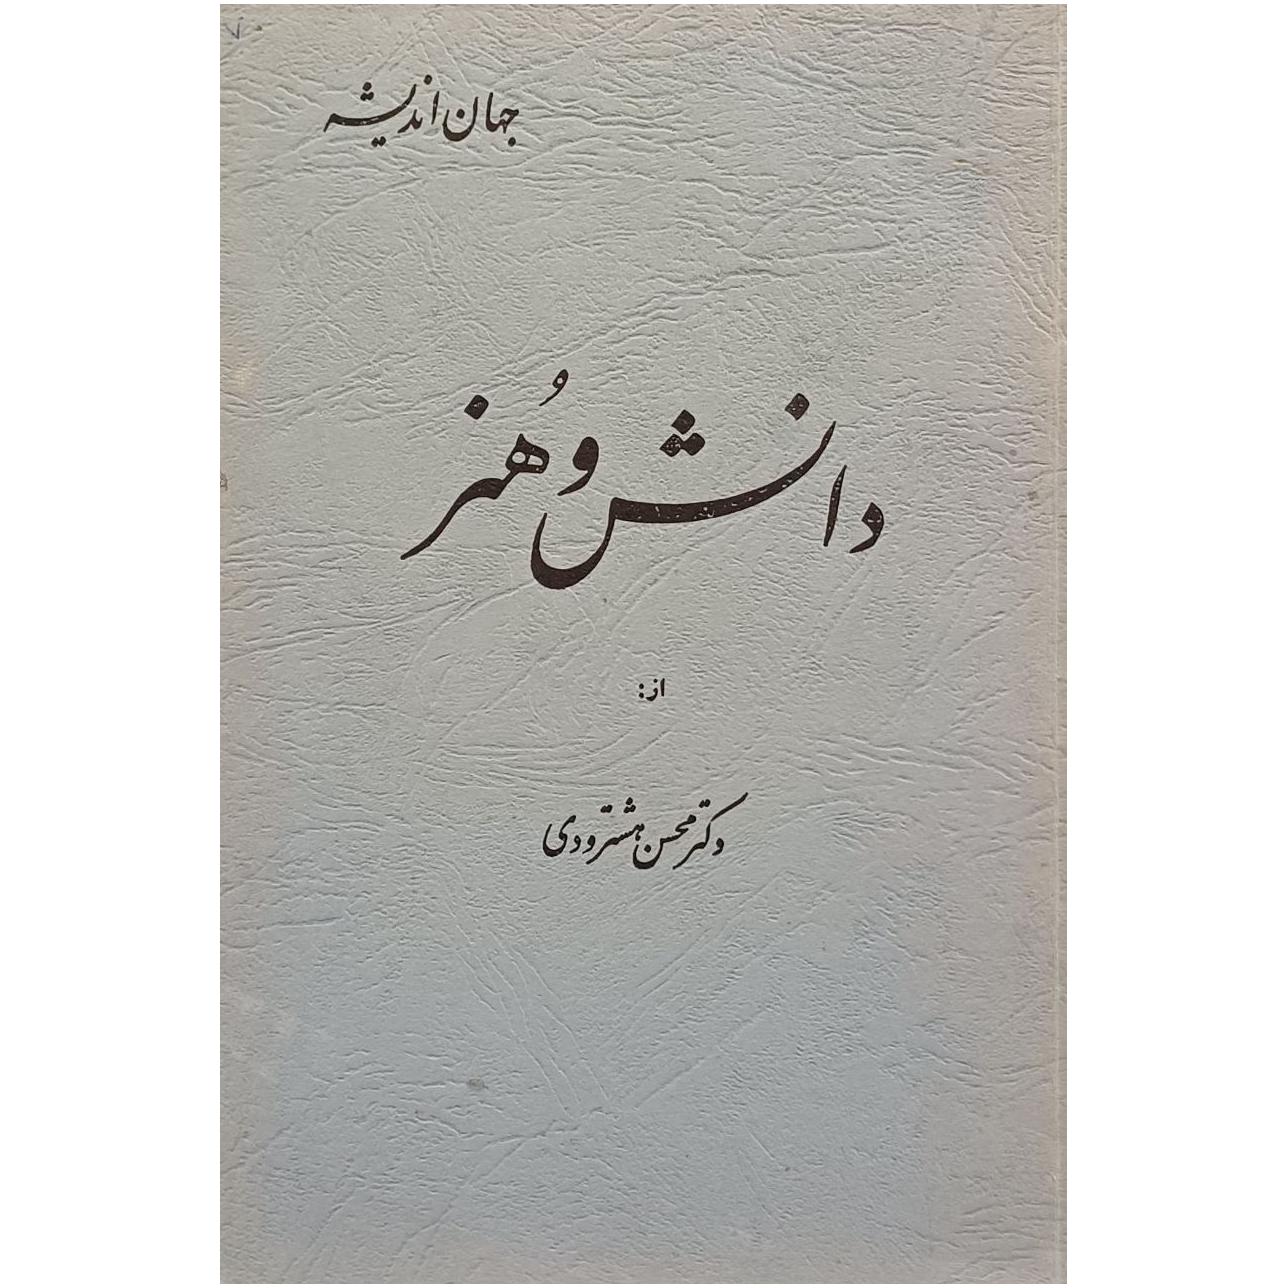 جهان اندیشه
دانش و هُنر
از:
دکتر محسن هشترودی